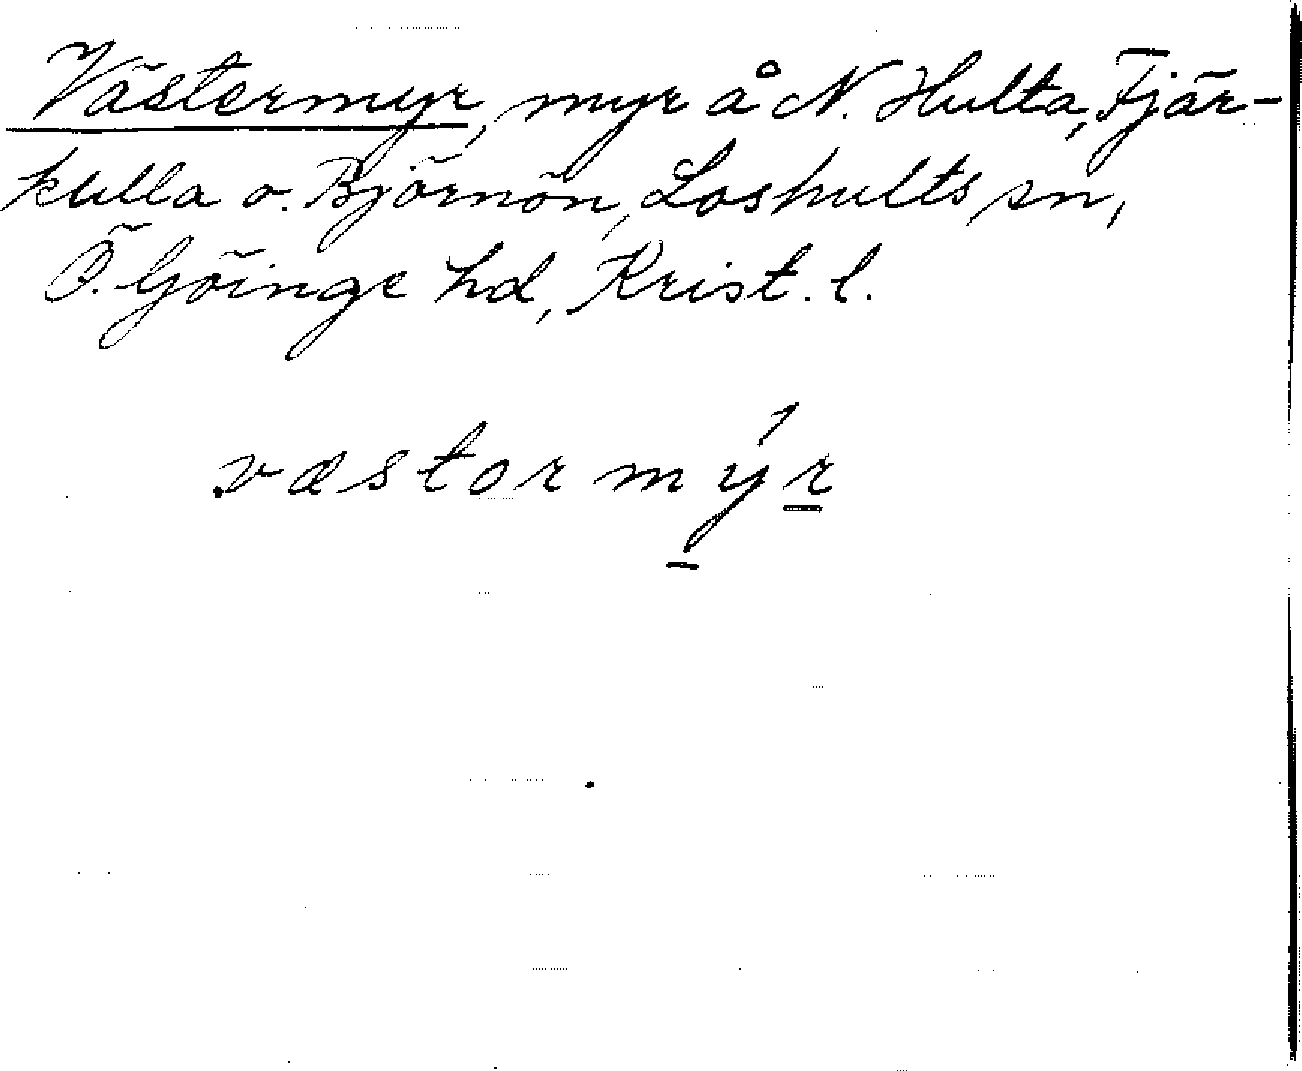 Västermyr, myr å N. Hulta, Tjär-
kulla o. Björnön, Loshults sn,
Ö. Göinge hd, Krist. l.
.væstor mýr